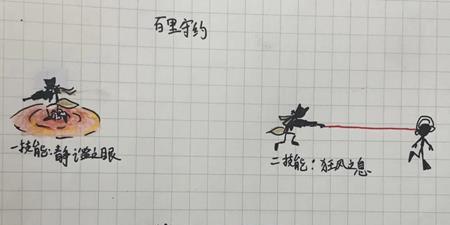 百里守约
一技能:静谧之眼
二技能:狂风之息